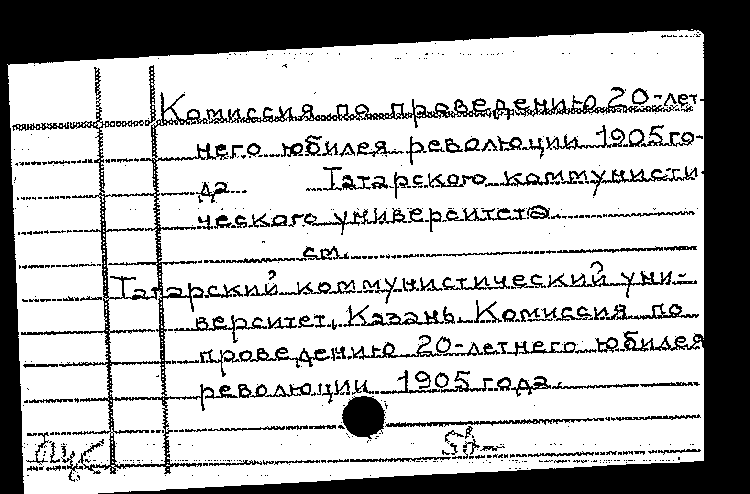 Комиссия по проведению 20-лет-
него юбилея революции 1905 го-
да Татарского коммунисти-
ческого университета
см.
Татарский коммунистический уни-
верситет, Казань. Комиссия по
проведению 20-летнего юбилея
революции 1905 года.